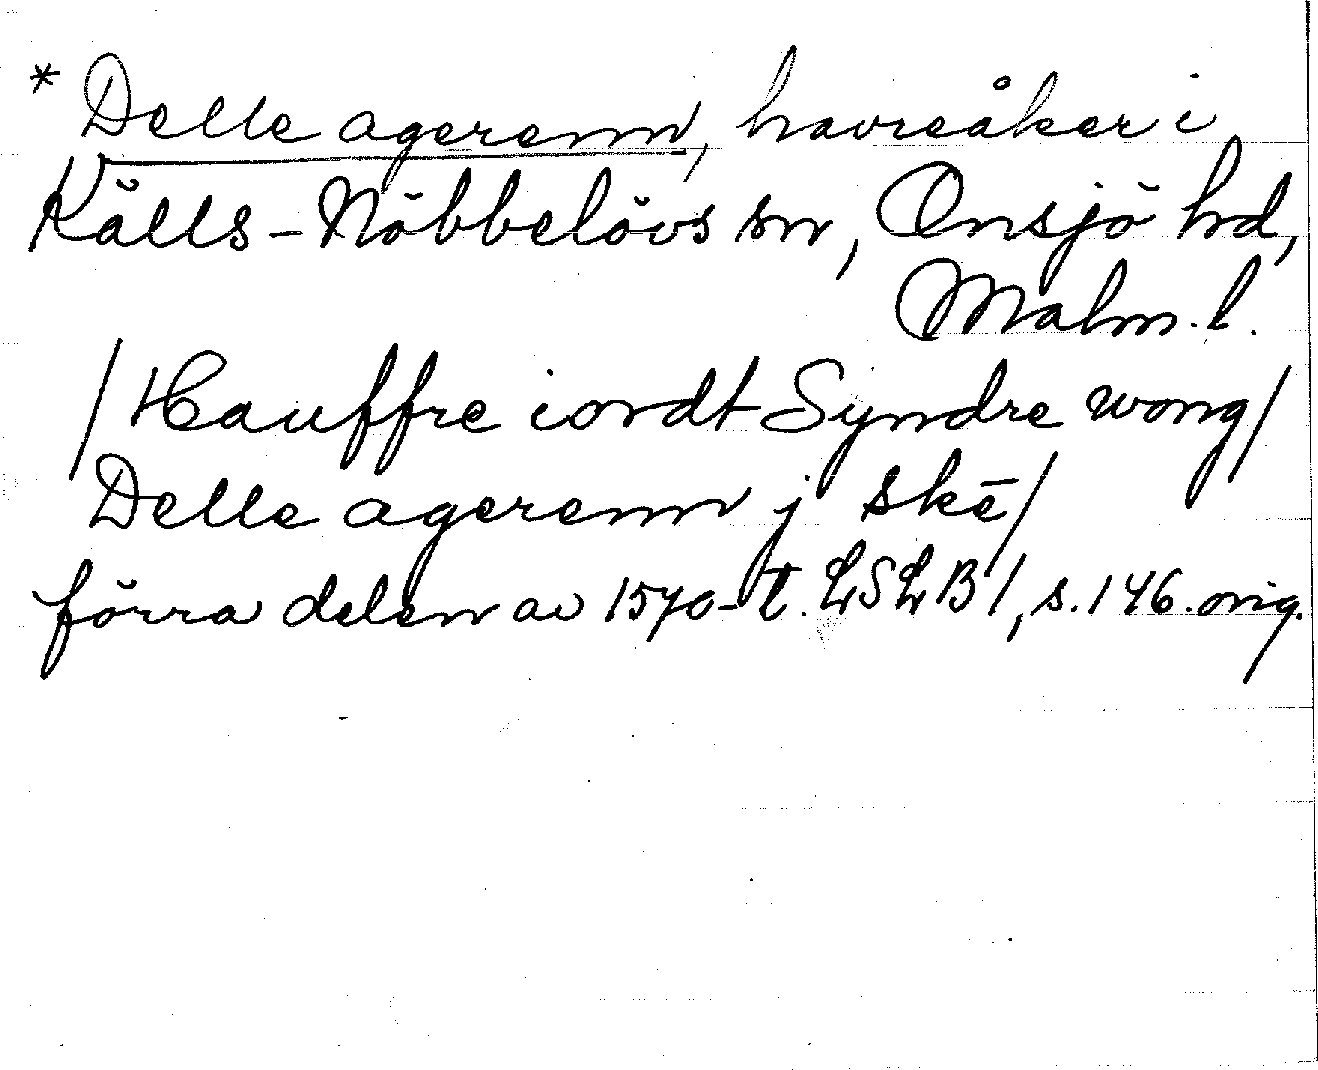 * Delle agerenn, havreåker i
Källs-Nöbbelövs sn, Onsjö hd,
Malm. l.
/Hauffre iordt Syndre wong/
Delle agerenn j skē/
förra delen av 1570-t. LSLB 1, s. 146. orig.